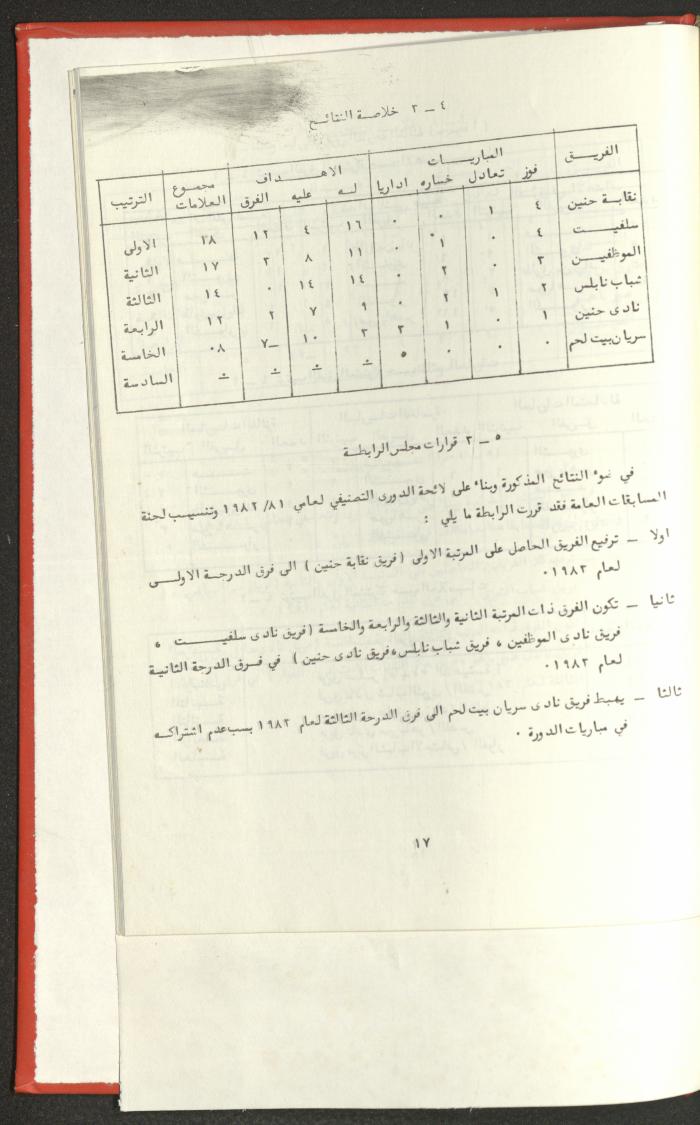 ٤ – ٣ خلاصة النتائج
الفريق المباريات الاهداف مجموع العلامات الترتيب
فوز تعادل خساره اداريا له عليه الفرق
نقابة حنين ٤ ١ ٠ ٠ ١٦ ٤ ١٢ ١٨ الاولى
سلفيت ٤ ٠ ١ ٠ ١١ ٨ ٣ ١٧ الثانية
الموظفين ٣ ٠ ٢ ٠ ١٤ ١٤ ٠ ١٤ الثالثة
شباب نابلس ٢ ١ ٢ ٠ ٩ ٧ ٢ ١٢ الرابعة
نادى حنين ١ ٠ ١ ٣ ٣ ١٠ –٧ ٠٨ الخامسة
سريان بيت لحم ٠ ٠ ٠ ٥ ÷ ÷ ÷ ÷ السادسة
٥ – ٣ قرارات مجلس الرابطة
في ضوء النتائج المذكورة وبناء على لائحة الدورى التصنيفي لعامي ٨١/ ١٩٨٢ وتنسيب لجنة
المسابقات العامة فقد قررت الرابطة ما يلي :
اولا – ترفيع الفريق الحاصل على المرتبة الاولى (فريق نقابة حنين ) الى فرق الدرجة الاولى
لعام ١٩٨٣٠
ثانيا – تكون الفرق ذات المرتبة الثانية والثالثة والرابعة والخامسة (فريق نادى سلفيت ،
فريق نادى الموظفين ، فريق شباب نابلس ،فريق نادى حنين ) في فرق الدرجة الثانية
لعام ١٩٨٣٠
ثالثا – يهبط فريق نادى سريان بيت لحم الى فرق الدرجة الثالثة لعام ١٩٨٣ بسبب عدم اشتراكه
في مباريات الدورة ٠
١٧